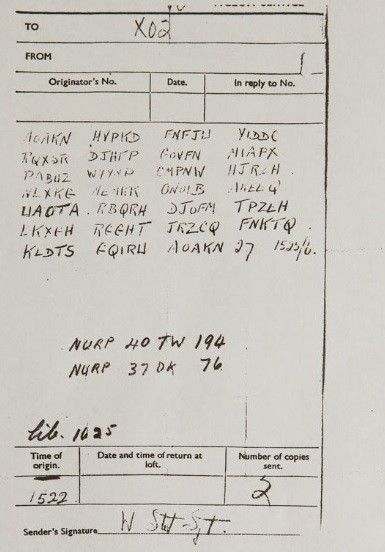 TO X02
FROM
Originator's No. Date. In reply to No.
AOAKN HVPKD FNFJU YIDDC
RQXSR DJHFP GOVFN MIAPX
PABUZ WYYNP CMPNW HJRZH
NLXKG MEMKK ONOIB AKEEQ
UAOTA RBQRH DJOFM TPZEH
LKXGH RGGHT JRZCQ FNKTQ
KLDTS GQIRU AOAKN 27 1525/6.
NURP 40 TW 194
NURP 37 DK 76
lib. 1625
Time of origin. Date and time of return at loft. Number of copies sent.
1522 2
Sender's Signature W Sjt.